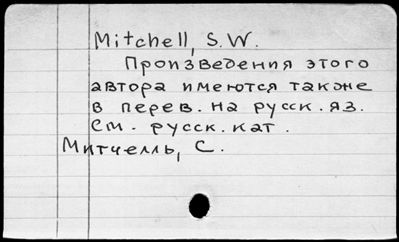 Mitchell, S.W.
Произведения этого
автора имеются также
в перев. на русск. яз.
См. русск. кат.
Митчелль, С.